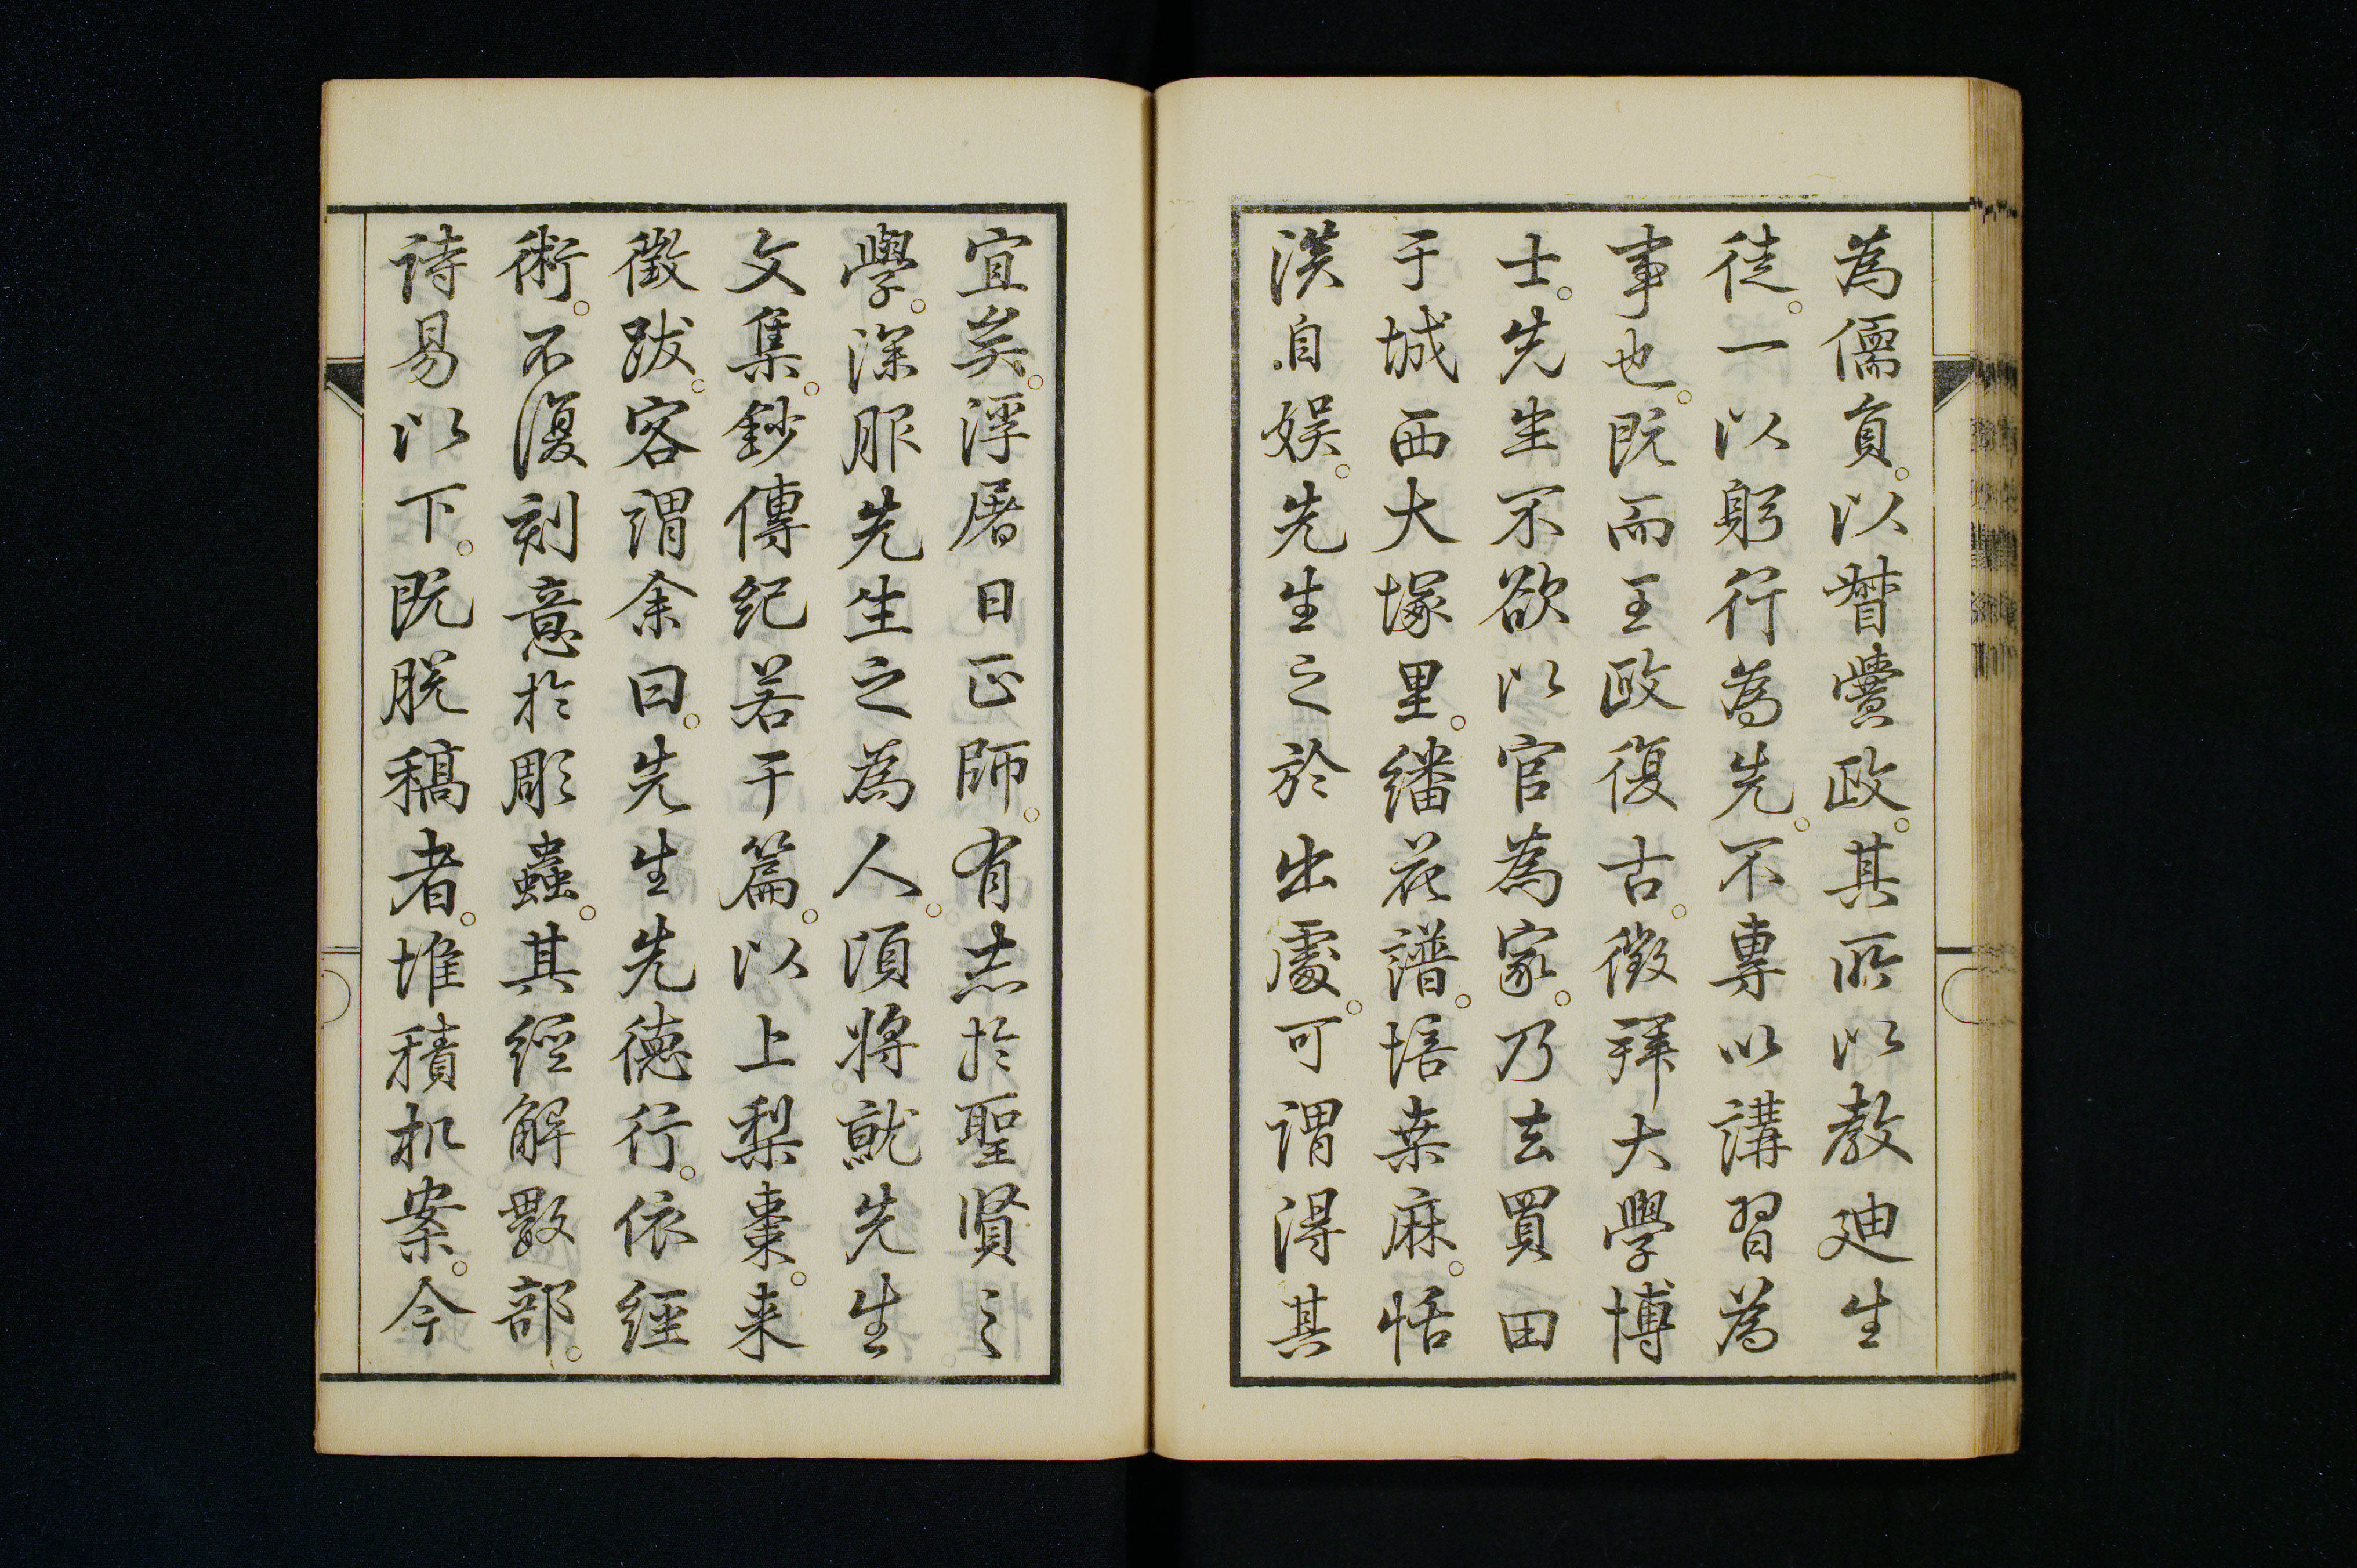 為儒員。以督黌政。其所以教廸生
徒。一以躬行為先。不專以講習為
事也。既而王政復古。徵拜大學博
士。先生不欲以官為家。乃去買田
于城西大塚里。繙花譜。培桒麻。恬
淡自娱。先生之於出處。可謂得其
宜矣。浮屠日正師。有志於聖賢之
學。深服先生之為人。頃將就先生
文集。鈔傳紀若干篇。以上梨棗。来
徵跋。客謂余曰。先生先德行。依經
術。不復刻意於彫蟲。其經解數部。
詩易以下。既脱稿者。堆積机案。今